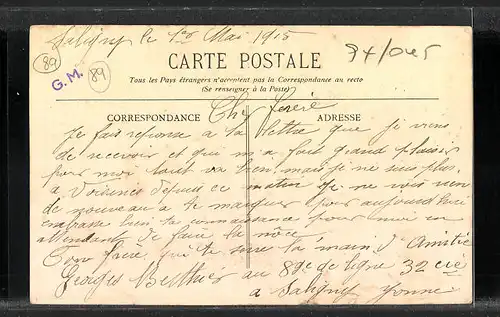 Saligny le 1er Mai 1915
CARTE POSTALE
Tous les Pays étrangers n'acceptent pas la Correspondance au recto
(Se renseigner à la Poste)
89
G.M.
89
CORRESPONDANCE
ADRESSE
Cher frère
Je fait reponse a ta lettre que je viens
de recevoir et qui m'a fait grand plaisir
pour moi tout va bien mais je ne suis plus
a Voisines depuis ce matin je ne vois rien
de nouveau a te marquer pour aujourd'hui
embrasse bien ta connaissance pour moi en
attendant de faire la nôce
Ton frère qui te serre la main d'Amitié
Georges Berthier au 89e de ligne 32 cie
a Saligny Yonne